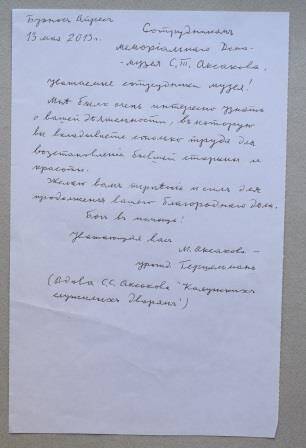 Буэносъ Айресъ
13 мая 2013 г.
Сотрудникамъ
меморіальнаго Дома-
-музея С.Т. Аксакова.
Уважаемые сотрудники музея!
Мнѣ было очень интересно узнать
о вашей дѣятельности, въ которую
вы вкладываете столько труда для
возстановленія бывшей старины и
красоты.
Желаю вамъ терпѣнія и силъ для
продолженія вашего благороднаго дѣла.
Богъ въ помощь!
Уважающая васъ
М. Аксакова -
урожд. Герцельманъ
(Вдова С.С. Аксакова "Калужскихъ
служилыхъ дворянъ")